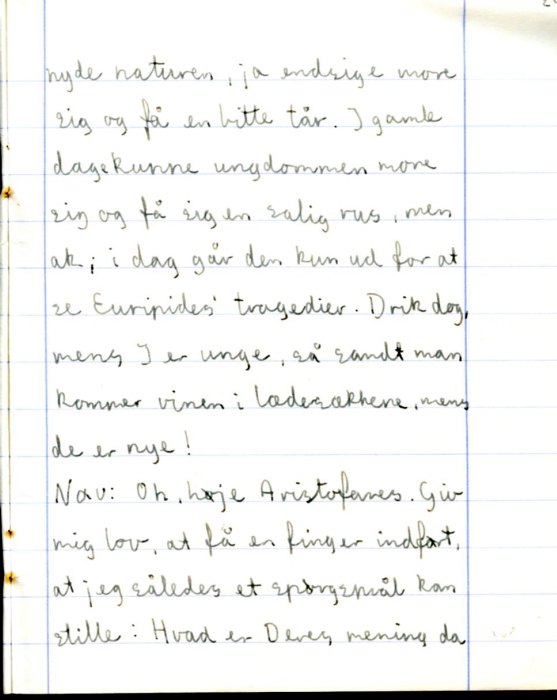 nyde naturen, ja endsige more
sig og få en bitte tår. I gamle
dage kunne ungdommen more
sig og få sig en salig rus, men
ak; i dag går den kun ud for at
se Euripides' tragedier. Drik dog,
mens I er unge, så sandt man
kommer vinen i lædersækkene, mens
de er nye!
Nav: Oh, høje Aristofanes. Giv
mig lov, at få en finger indført,
at jeg således et spørgsmål kan
stille: Hvad er Deres mening da